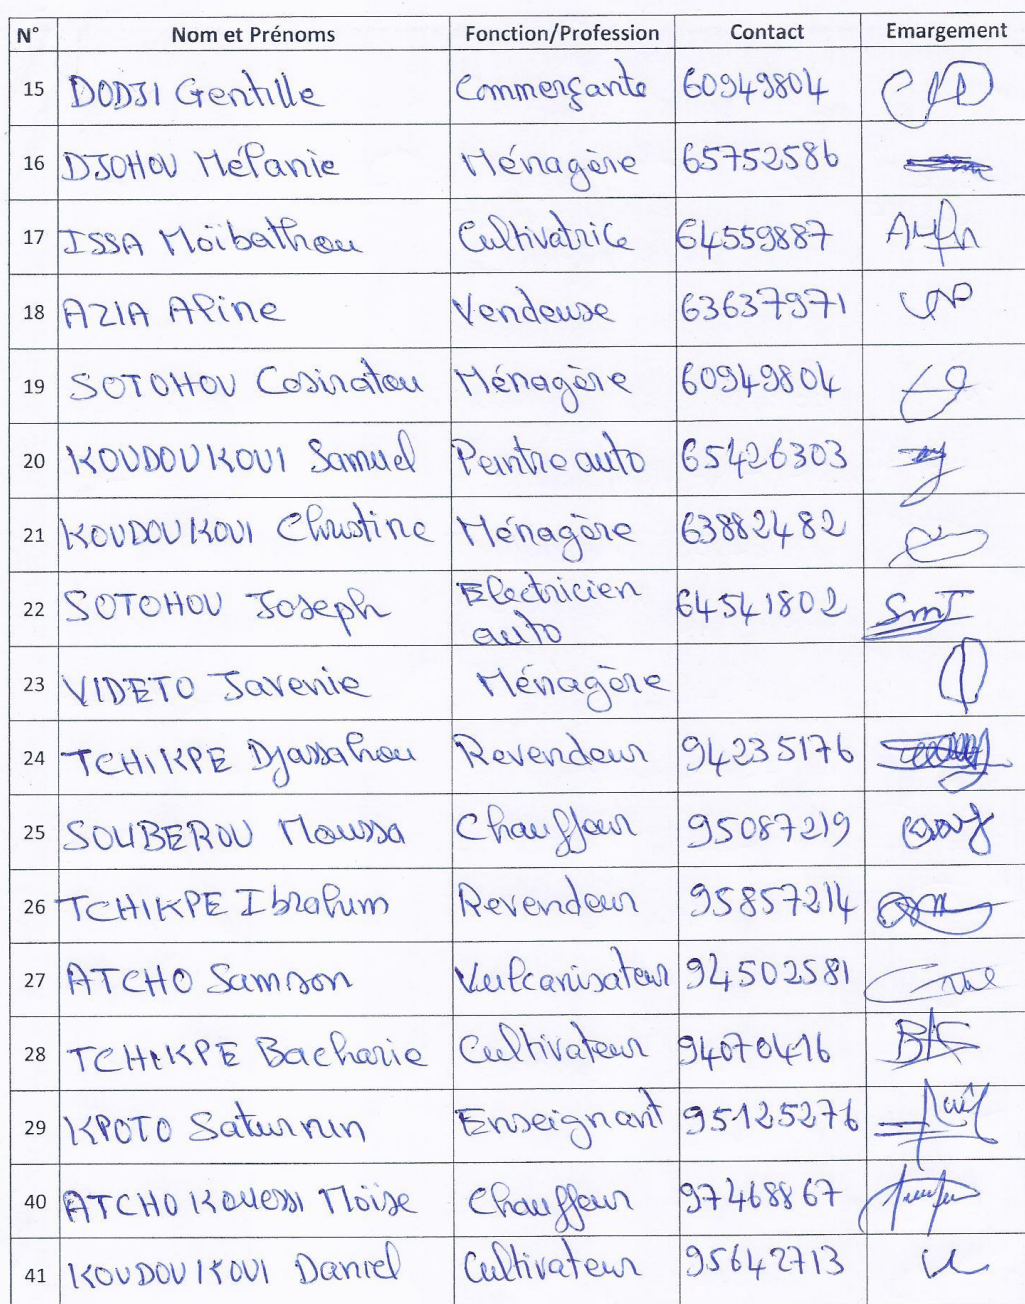 N° Nom et Prénoms Fonction/Profession Contact Emargement
15 DODJI Gentille Commerçante 60949804
16 DJOHOU Mélanie Ménagère 65752586
17 ISSA Moïbathou Cultivatrice 64559887
18 AZIA Aline Vendeuse 63637971
19 SOTOHOU Cosinatou Ménagère 60949804
20 KOUDOUKOUI Samuel Peintre auto 65426303
21 KOUDOUKOUI Christine Ménagère 63882482
22 SOTOHOU Joseph Electricien auto 64541802
23 VIDETO Javenie Ménagère
24 TCHIKPE Djassahou Revendeur 94235176
25 SOUBEROU Moussa Chauffeur 95087219
26 TCHIKPE Ibrahim Revendeur 95857214
27 ATCHO Samson Vulcanisateur 94502581
28 TCHIKPE Bacharie Cultivateur 94070416
29 KPOTO Saturnin Enseignant 95125276
40 ATCHO Kouessi Moïse Chauffeur 97468867
41 KOUDOUKOUI Daniel Cultivateur 95642713